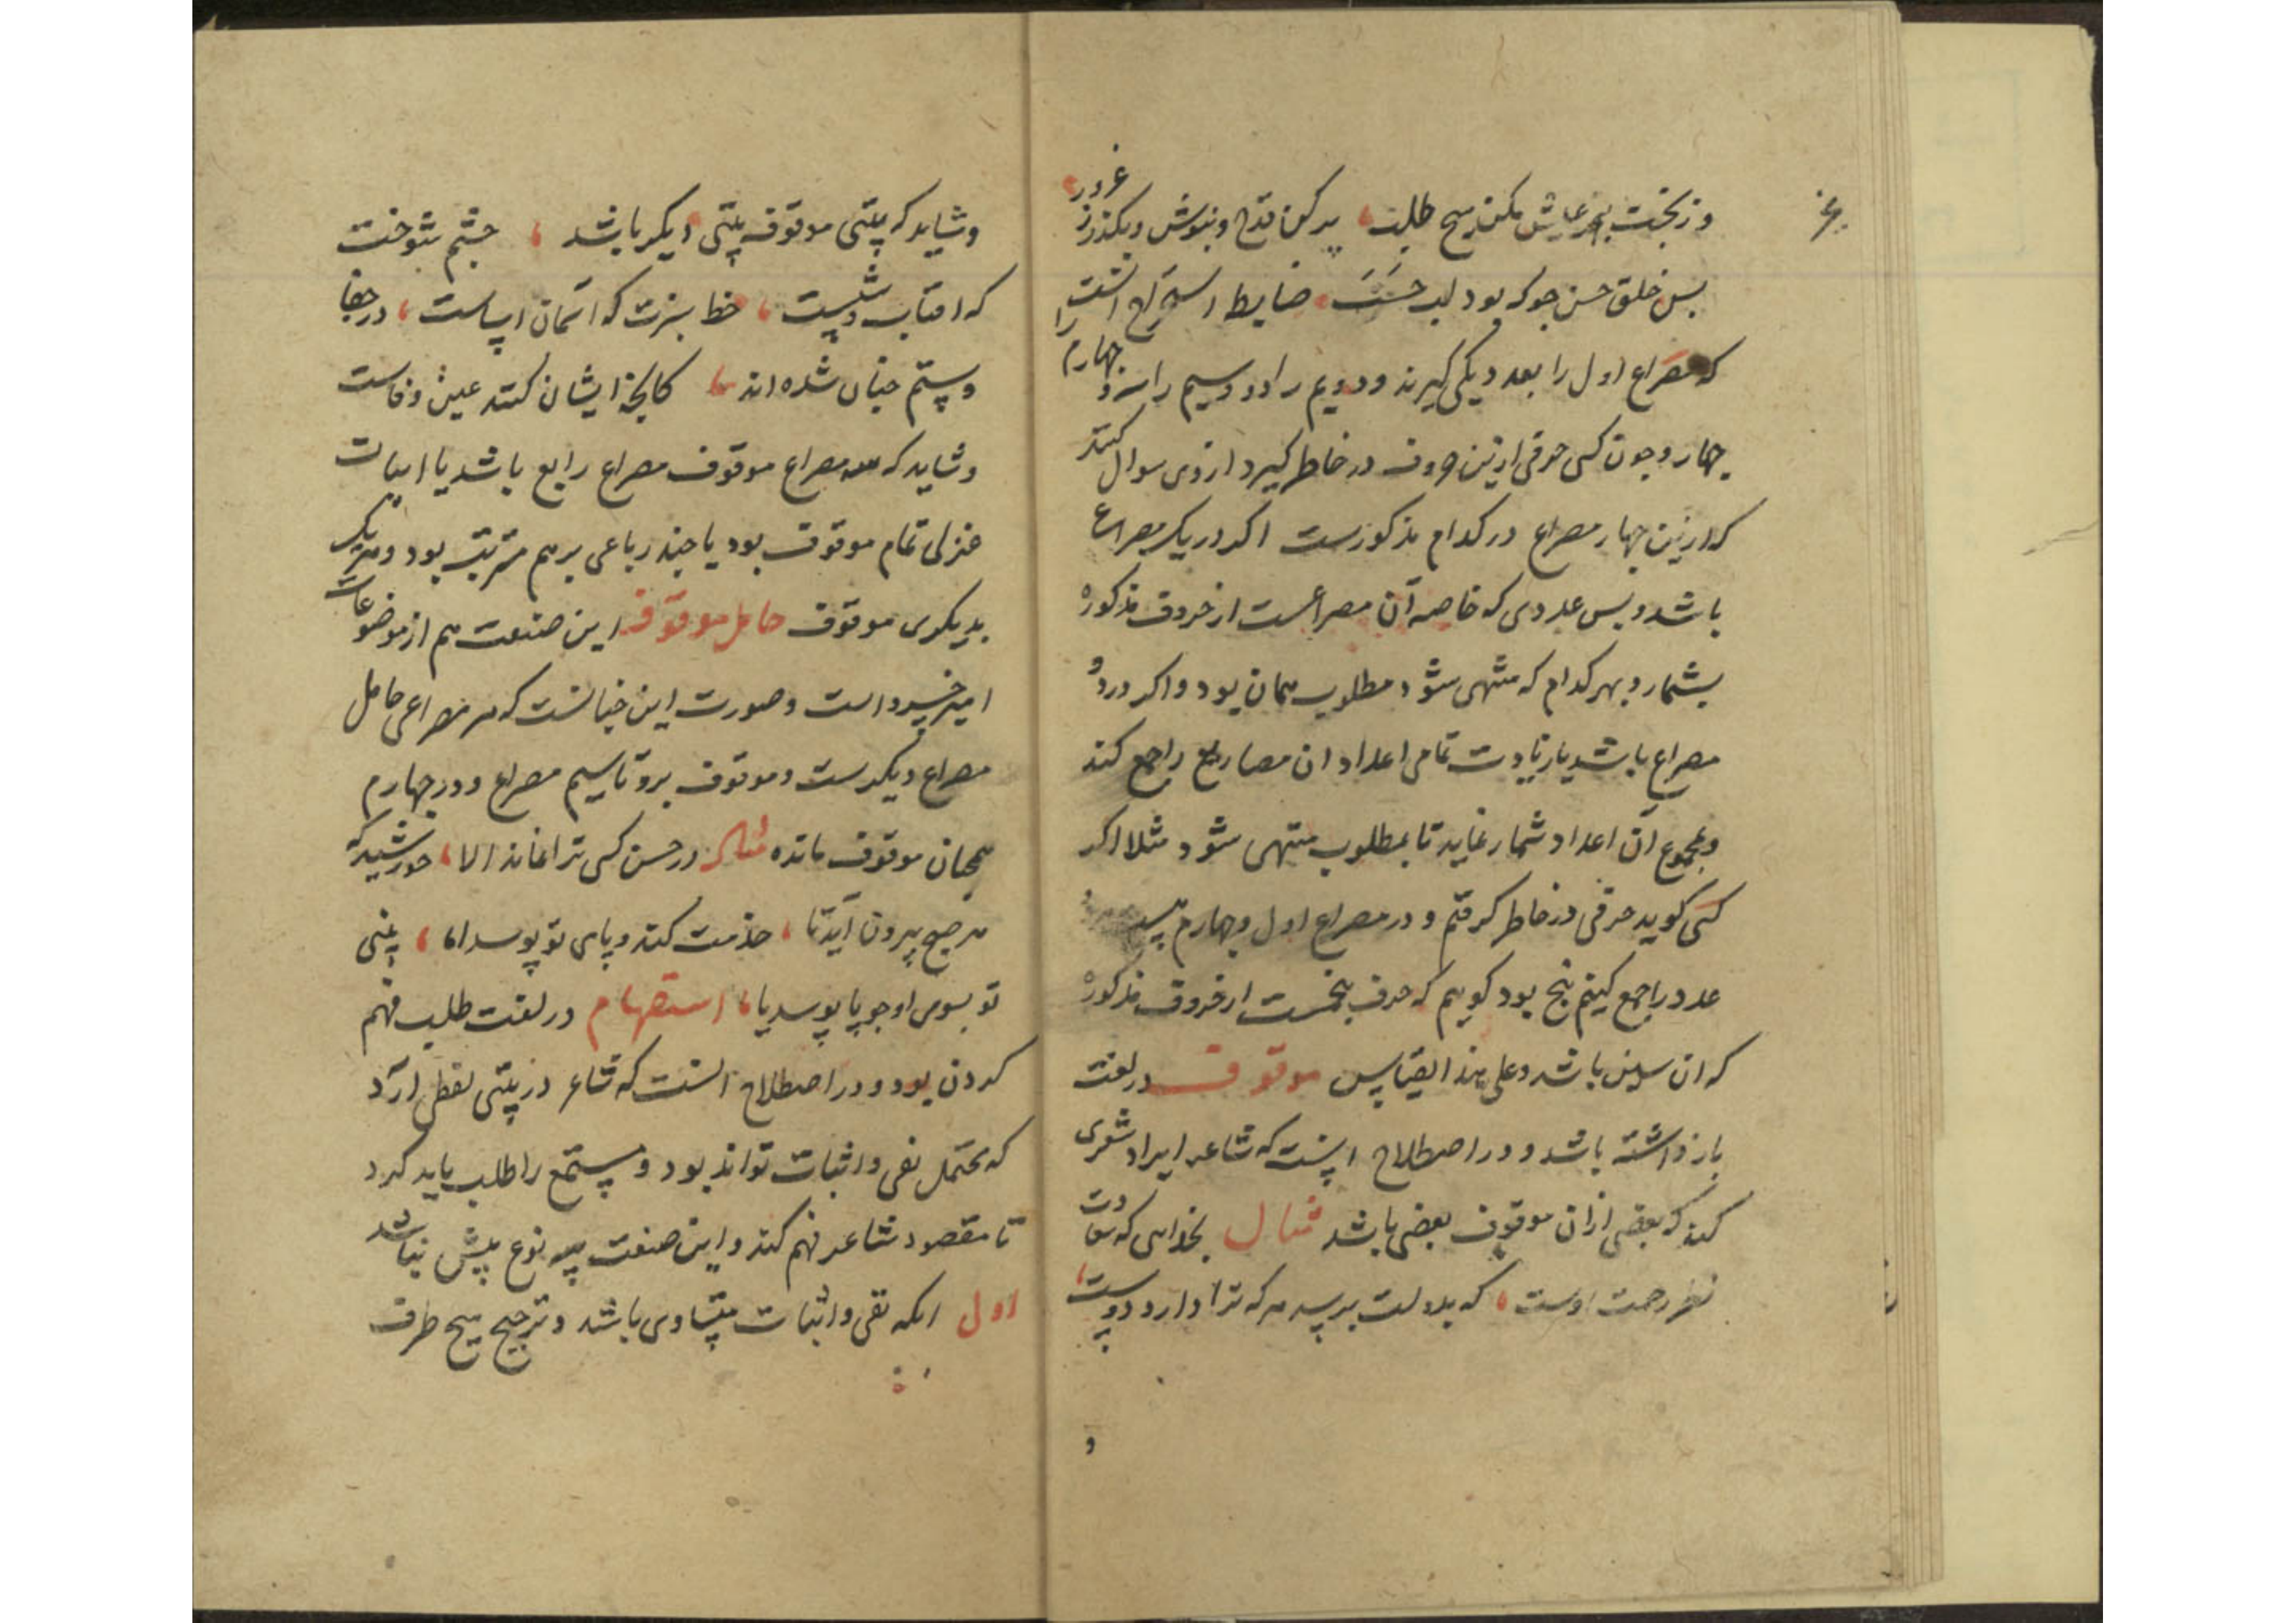 غرور
وز بخت بجز عایش مکن هیچ طلب، پر کن قدح و بنوش و بگذر ز
پس خلق حسن جو که بود لب حسب، ضابط استخراج انست
که مصراع اول را بعد دیکی کیرند و دویم را دو و سیم را سه و چهارم را
چهار و چون کسی حرفی ازین حروف در خاطر کیرد ازوی سوال کنند
که ازین چهار مصراع در کدام مذکورست اکر در یک مصراع
باشد و بس عددی که خاصه آن مصراعست از حروف مذکوره
بشمارد بهر کدام که منتهی شود مطلوب همان بود و اکر در دو
مصراع باشد یا زیادت تمامی اعداد ان مصاریع را جمع کند
و بمجموع آن اعداد شمار نماید تا بمطلوب منتهی شود مثلا اکر
کسی کوید حرفی در خاطر کرفتم و در مصراع اول و چهارم
عدد را جمع کنیم پنج بود کوییم که حرف پنجمست از حروف مذکوره
که ان سین باشد و علی هذا القیاس موقوف در لغت
بازداشته باشد و در اصطلاح اینست که شاعر ایراد شعری
کند که بعضی ازان موقوف بعضی باشد مثال بخدایی که سعادت
نظر رحمت اوست، که بدولت برسد هر که ترا دارد دوست،
و شاید که بیتی موقوف بیتی دیکر باشد ، چشم شوخت
که افتاب وشست ، خط سبزت که آسمان اساست ، در جفا
و ستم چنان شده اند ، کانچه ایشان کنند عین وفاست
و شاید که سه مصراع موقوف مصراع رابع باشد یا ابیات
غزلی تمام موقوف بود یا چند رباعی بر هم مترتب بود و هر یک
بدیکری موقوف حامل موقوف این صنعت هم از موضوعات
امیر خسرو است و صورت این چنانست که هر مصراعی حامل
مصراع دیکرست و موقوف برو تا سیم مصراع و در چهارم
همچنان موقوف مانده مثال در حسن کسی ترا نماند الا ، خورشید که
هر صبح بیرون آید تا ، خدمت کند و پای تو بوسد اما ، بینی
تو بسوی او چو پا بوسد یا ، استفهام در لغت طلب فهم
کردن بود و در اصطلاح انست که شاعر در بیتی لفظی آرد
که محتمل نفی و اثبات تواند بود و مستمع را طلب باید کرد
تا مقصود شاعر فهم کند و این صنعت سه نوع بیش نباشد
اول انکه نفی و اثبات متساوی باشد و ترجیح هیچ طرف